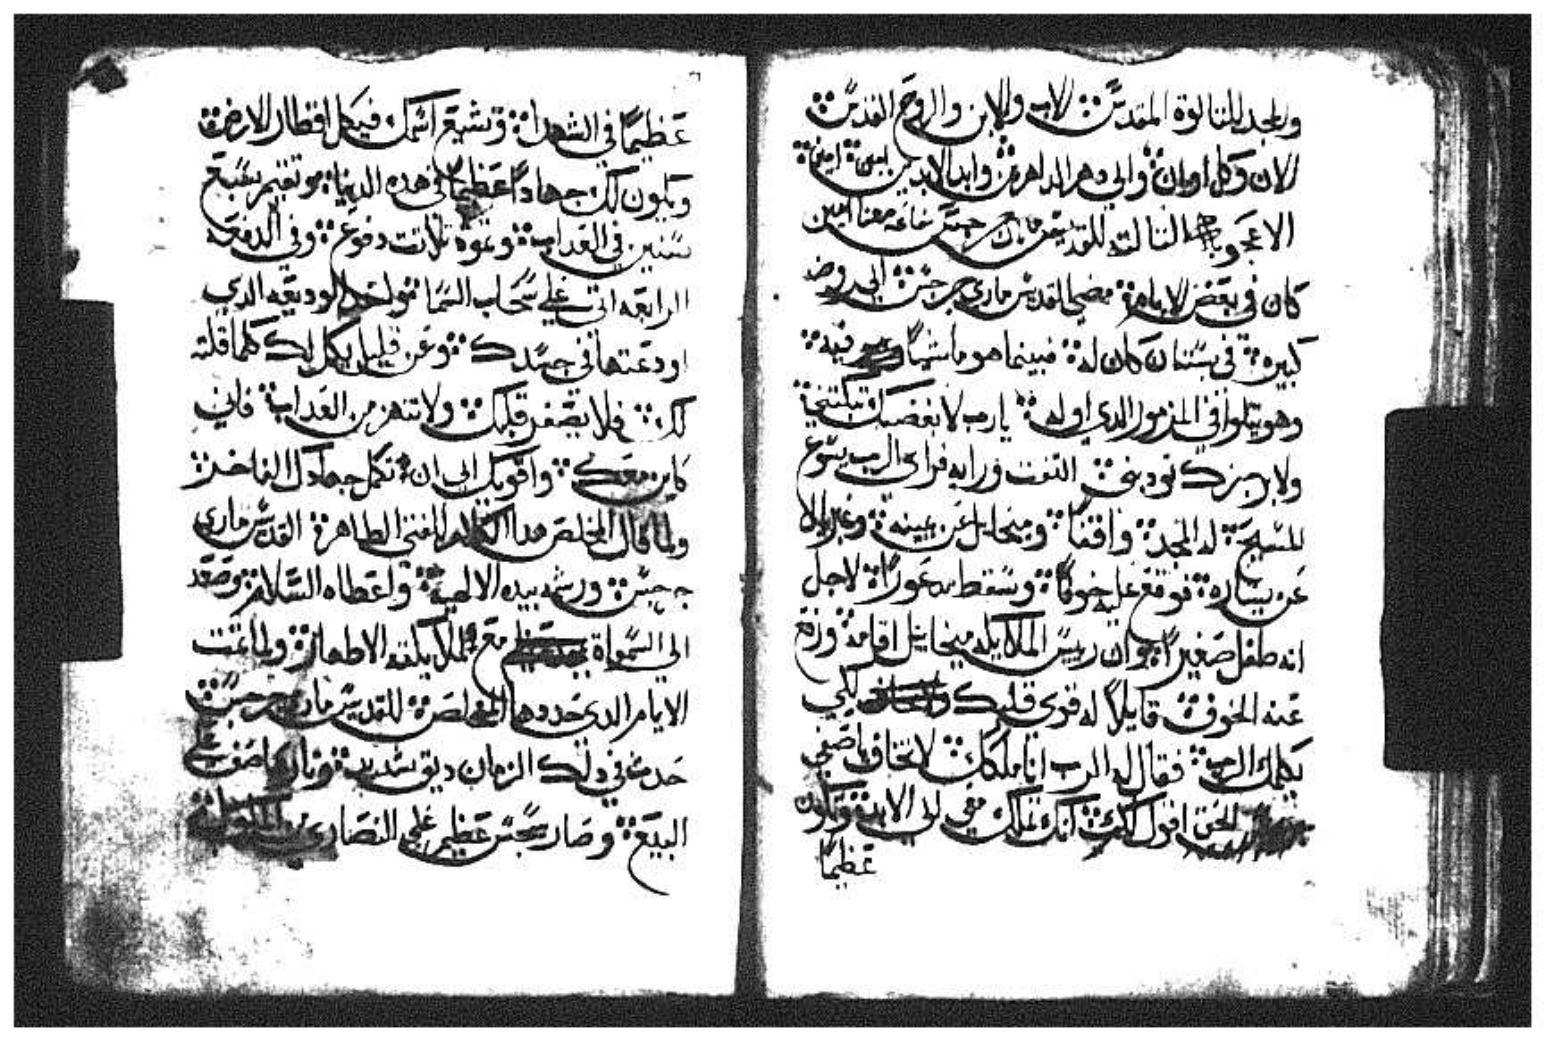 والمجد للتالوة المقدس الاب والابن والروح القدس
الان وكل اوان والي دهر الداهرين وابد الابدين امين امين
الاعجوبه التالته للقديس ماري جرجس معنا امين
كان في بعض الايام مضي القديس ماري جرجس الي
كبيره في بستان كان له فبينما هو ماشيا فيه
وهو يتلوا في المزمور الدي اوله يارب لا بغضبك تبكتني
ولا برجزك تودبني التفت ورايه فراي الرب يسوع
المسيح له المجد واقفا وميخايل عن يمينه وغبريال
عن يساره فوقع عليه خوفا وسقط مدعورا لاجل
انه طفل صغيرا وان ريس الملايكه ميخاييل اقامه ونزع
عنه الخوف قايلا له قوي قلبك لكي
يكلمك الرب فقال له الرب انا ملكك لا تخاف ياصفيي
الحق اقول لك انك تملك معي الي الابد وتكون
عظيما
عظيما في الشهدا وتشيع اسمك في كل اقطار الارض
ويكون لك جهادا عظيما في هده الدنيا وتقيم سبع
سنين في العداب وتموت تلاتت دفوع وفي الدفعه
الرابعه اتي علي سحاب السما واخد الوديعه الدي
اودعتها في جسدك وعن قليل يكمل لك كلما قلته
لك فلا يصغر قلبك ولا تنهزم من العداب فاني
كاين معك واقويك الي ان تكمل جهادك الفاخر
ولما قال المخلص هدا الكلام للفتي الطاهر القديس ماري
جرجس ورشمه بيده الالهيه واعطاه السلام وصعد
الي السمواة مع ملايكته الاطهار ولما تمت
الايام الدي حددها المخلص للقديس ماري جرجس
حدث في دلك الزمان ديق شديد علي
البيع وصار حبس عظيم علي النصاري